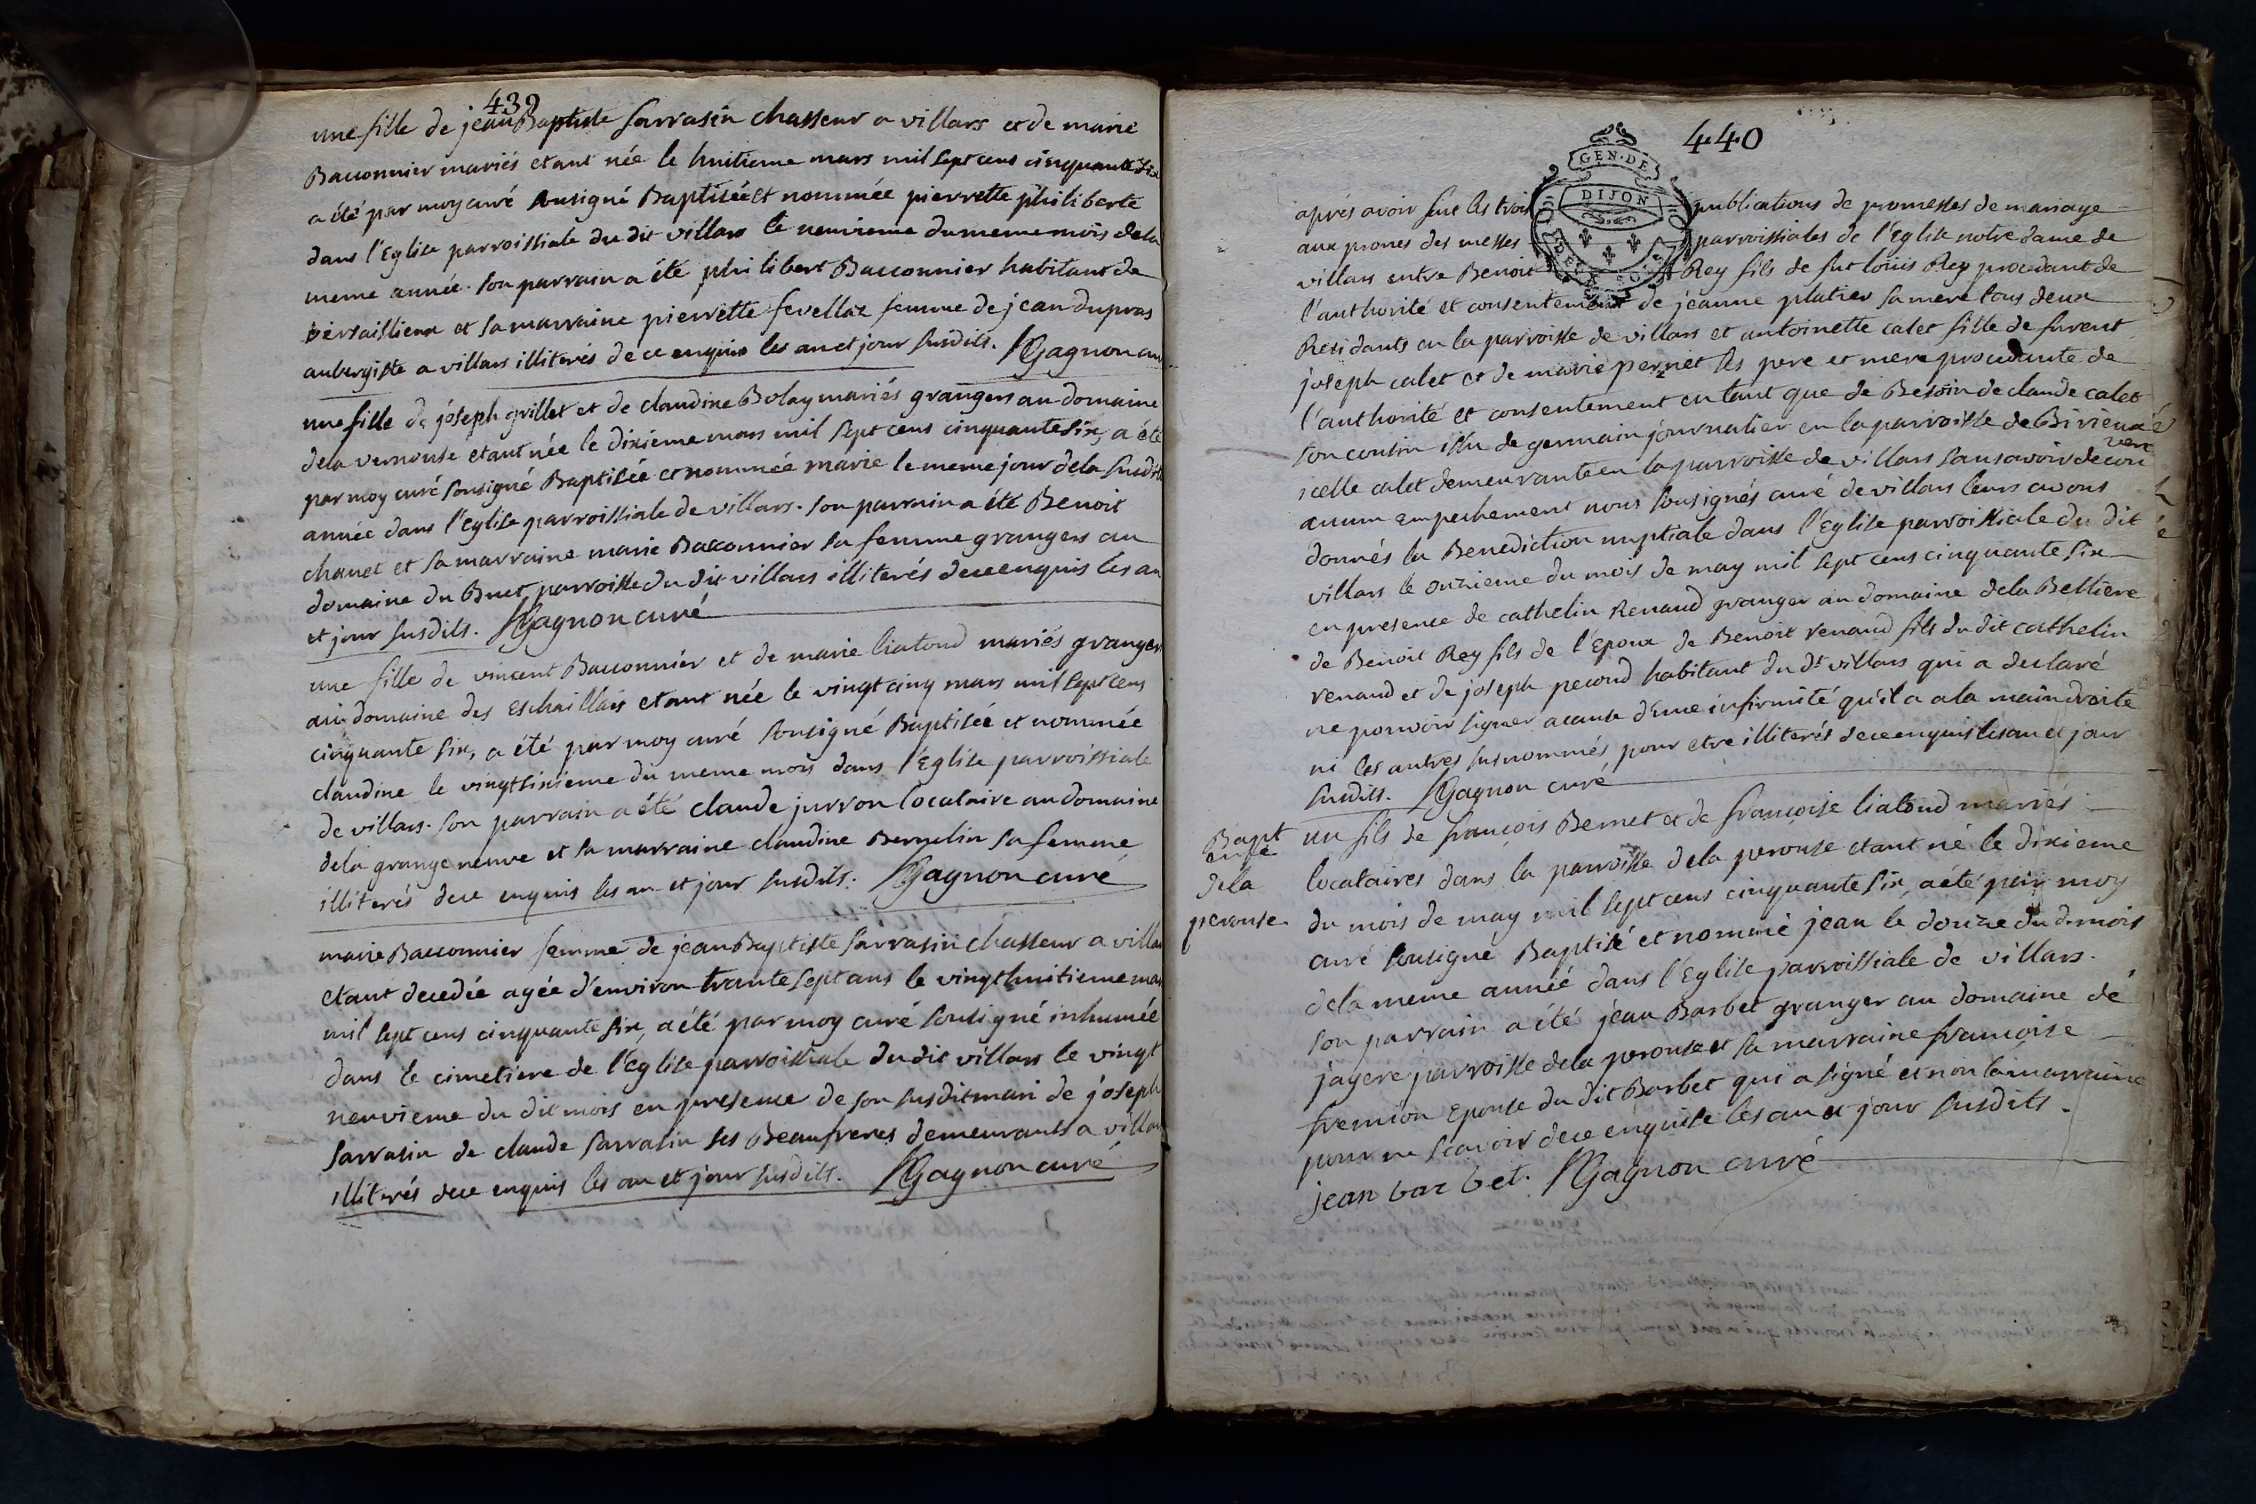 439
une fille de jean Baptiste sarrasin chasseur a villars et de marie
Bacconnier mariés etant née le huitieme mars mil sept cens cinquante six
a été par moy curé sousigné Baptisée et nommée pierrette philiberte
dans l'Eglise parroissiale du dit villars le neuvieme du meme mois de la
meme année. son parrain a été philibert Bacconnier habitant de
versaillieux et sa marraine pierrette fevellaz femme de jean dupras
aubergiste a villars illiterés de ce enquis les an et jour susdits. Gagnon curé
une fille de joseph grillet et de claudine Bolay mariés grangers au domaine
de la vernouse etant née le dixieme mars mil sept cens cinquante six, a été
par moy curé sousigné Baptisée et nommée marie le meme jour de la susdite
année dans l'Eglise parroissiale de villars. son parrain a été Benoit
chanet et sa marraine marie Bacconnier sa femme grangers au
domaine du Buet parroisse du dit villars illiterés de ce enquis les an
et jour susdits. Gagnon curé
une fille de vincent Bacconnier et de marie liatoud mariés granger
au domaine des eschaillais etant née le vingt cinq mars mil sept cens
cinquante six, a été par moy curé sousigné Baptisée et nommée
claudine le vingt sixieme du meme mois dans l'Eglise parroissiale
de villars. son parrain a été claude jurron locataire au domaine
de la grange neuve et sa marraine claudine Bernelin sa femme
illiterés de ce enquis les an et jour susdits. Gagnon curé
marie Bacconnier femme de jean Baptiste sarrasin chasseur a villars
etant decedée agée d'environ trante sept ans le vingt huitieme mars
mil sept cens cinquante six, a été par moy curé sousigné inhumée
dans le cimetiere de l'Eglise parroissiale du dit villars le vingt
neuvieme du dit mois en presence de son susdit mari de joseph
sarrasin de claude sarrasin ses Beaufreres demeurants a villars
illiterés de ce enquis les an et jour susdits. Gagnon curé
440
GEN·DE
DIJON
aprés avoir fait les trois publications de promesses de mariage
aux prones des messes parroissiales de l'Eglise notre dame de
villars entre Benoit Rey fils de fut loüis Rey procedant de
l'authorité et consentement de jeanne platier sa mere tous deux
Residants en la parroisse de villars et antoinette calet fille de furent
joseph calet et de marie pernet ses pere et mere procedante de
l'authorité et consentement en tant que de Besoin de claude calet
son cousin issu de germain journalier en la parroisse de Birieux
icelle calet demeurante en la parroisse de villars sans avoir decou
vert
aucun empechement nous sousignés curé de villars leurs avons
donnés la Benediction nuptiale dans l'Eglise parroissiale du dit
villars le onzieme du mois de may mil sept cens cinquante six
en presence de cathelin Renaud granger au domaine de la Bettiere
de Benoit Rey fils de l'Epoux de Benoit renaud fils du dit cathelin
renaud et de joseph pecoud habitant du dt villars qui a declaré
ne pouvoir signer a cause d'une infirmité qu'il a a la main droite
ni les autres susnommés pour etre illiterés de ce enquis les an et jour
susdits. Gagnon curé
Bapt
de la
perouse
un fils de françois Bernet et de françoise liatoud mariés
locataires dans la parroisse de la perouse etant né le dixieme
du mois de may mil sept cens cinquante six, a été par moy
curé sousigné Baptisé et nommé jean le douze du d. mois
de la meme année dans l'Eglise parroissiale de villars.
son parrain a été jean Barbet granger au domaine de
jagere parroisse de la perouse et sa marraine francoise
fremion Epouse du dit Barbet qui a signé et non la marraine
pour ne scavoir de ce enquise les an et jour susdits.
jean barbet. Gagnon curé